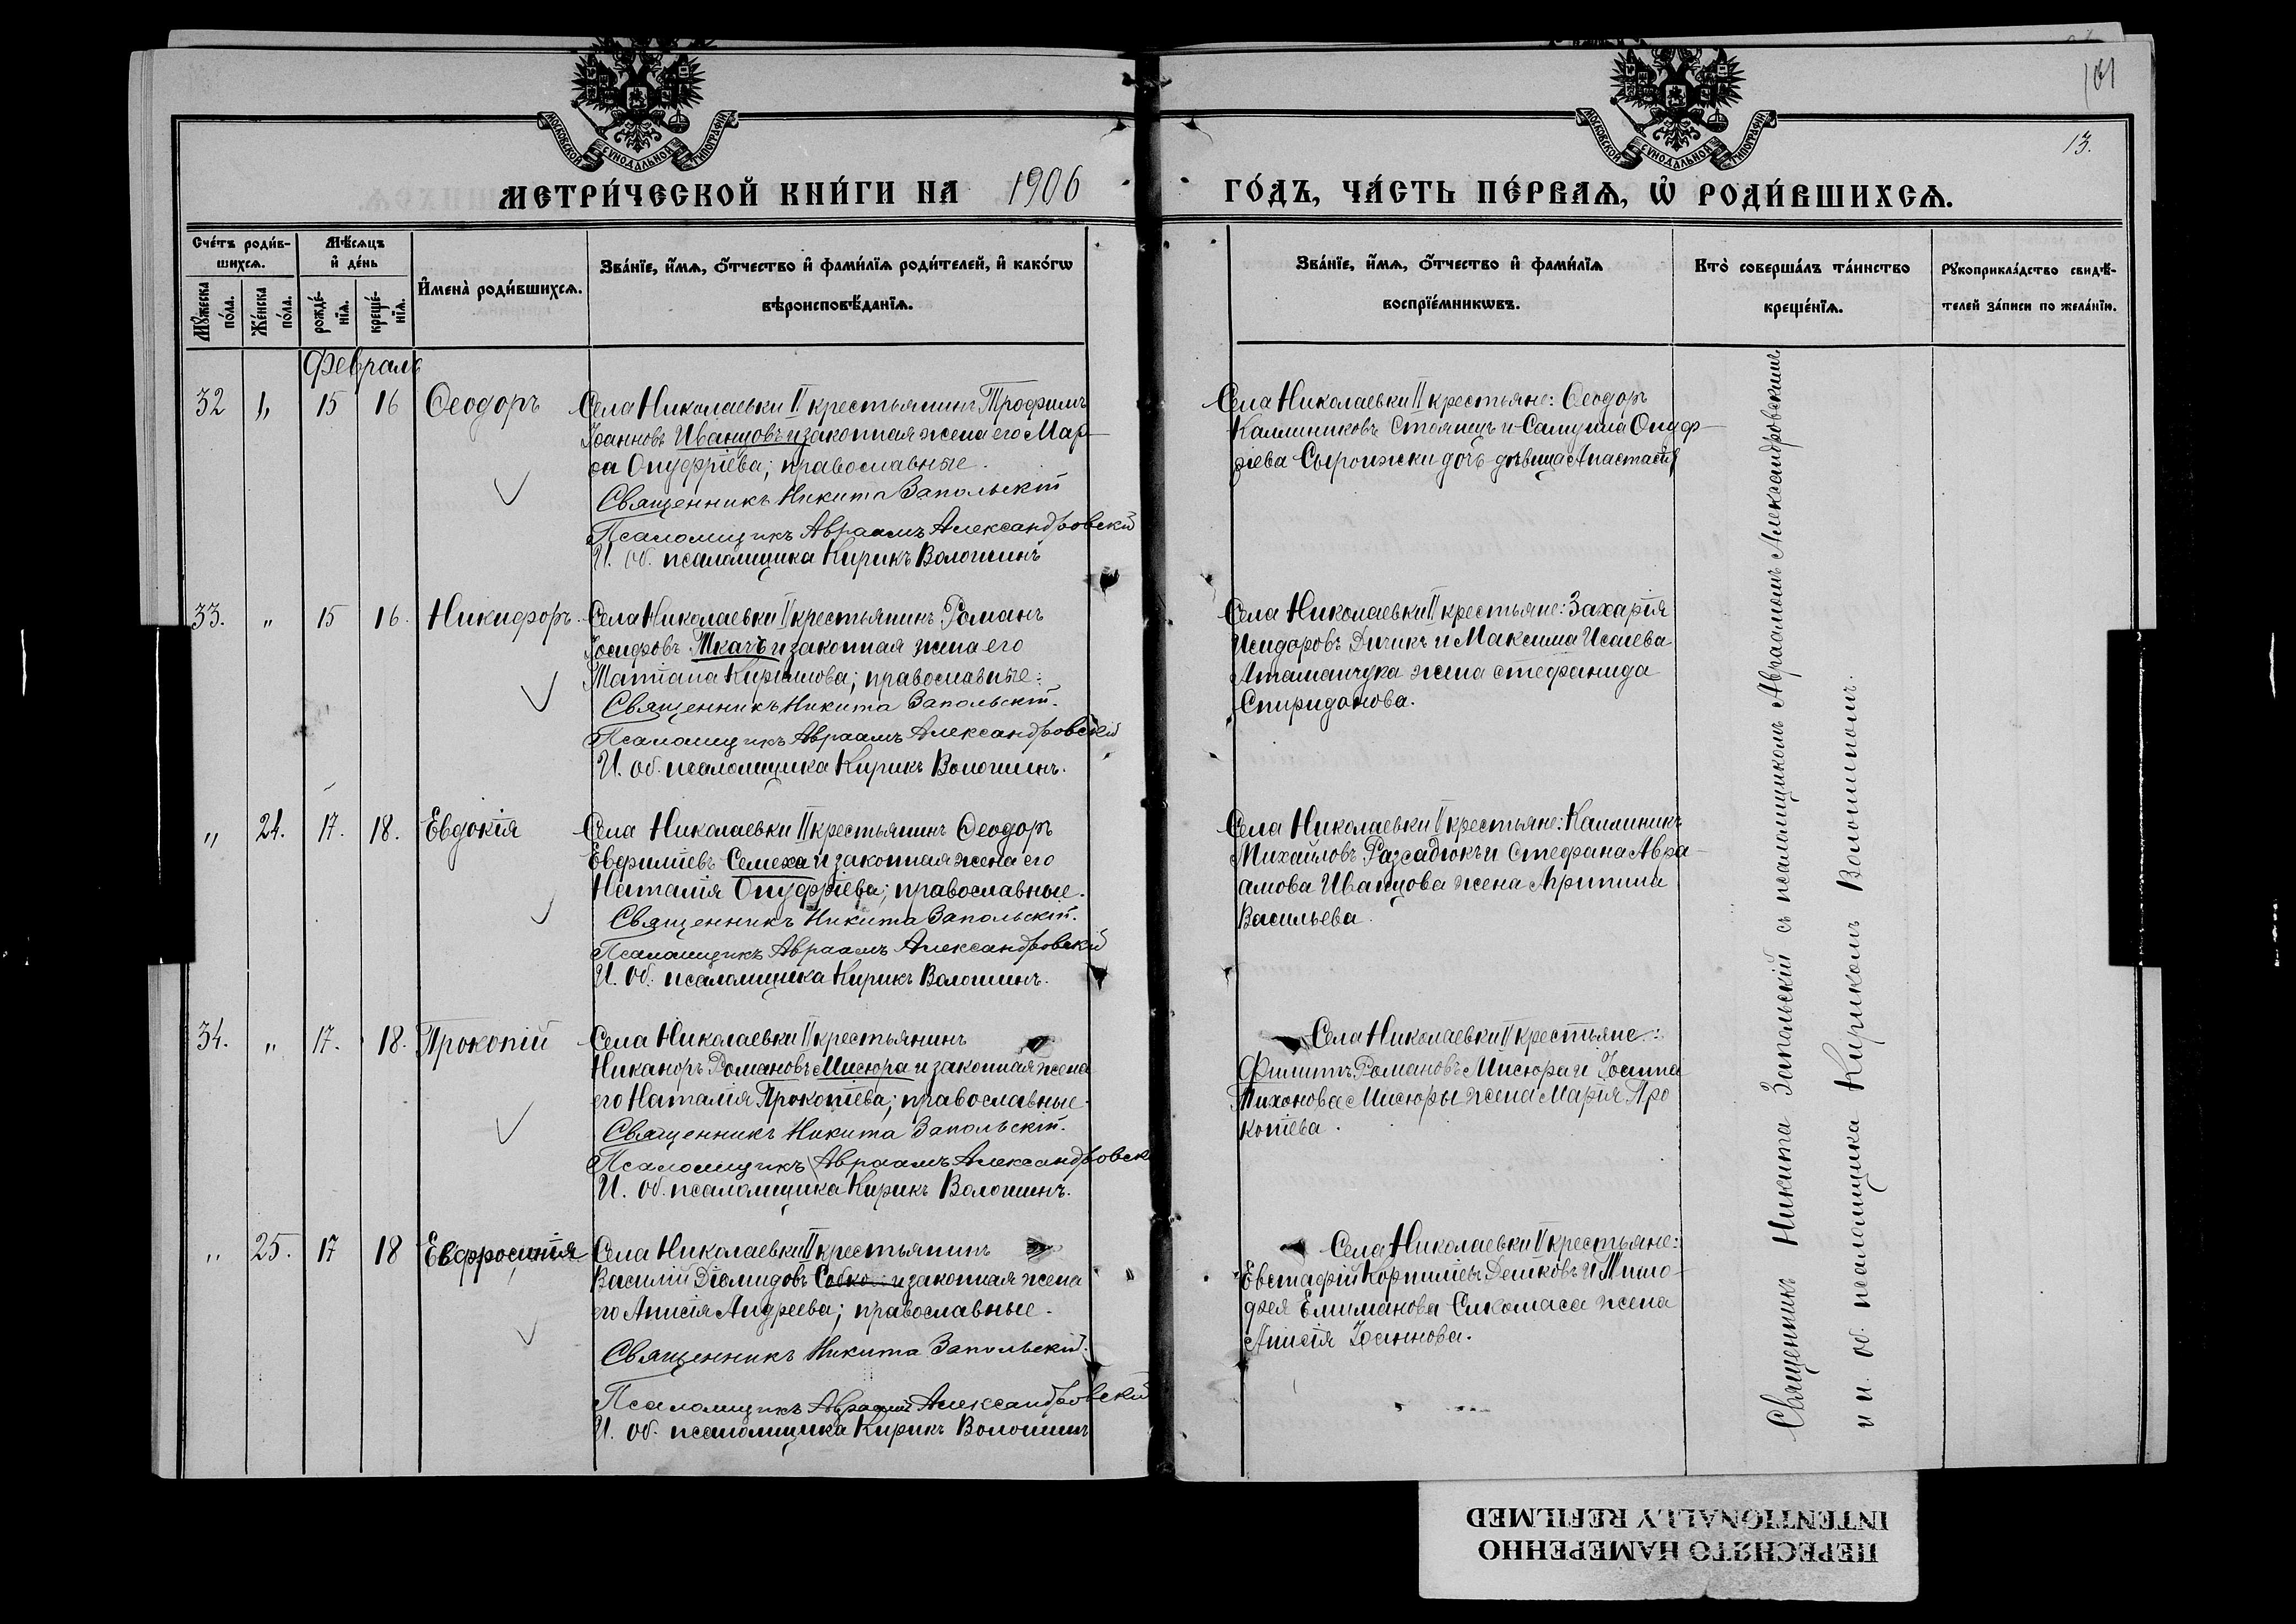 101
13.
МОСКОВСКОЙ СѴНОДАЛЬНОЙ ТИПОГРАФІИ
МОСКОВСКОЙ СѴНОДАЛЬНОЙ ТИПОГРАФІИ
МЕТРИ́ЧЕСКОЙ КНИ́ГИ НА 1906
ГО́ДЪ, ЧА́СТЬ ПЕ́РВАѦ, Ѡ҆ РОДИ́ВШИХСѦ.
Сче́тъ роди́в-
шихсѧ.
Мꙋ́жеска по́ла.
Же́нска по́ла.
Мѣ́сѧцъ и҆ де́нь
рожде́-нїѧ.
креще́-нїѧ.
И҆мена̀ роди́вшихсѧ.
Зва́нїе, и҆́мѧ, ѻ҆́тчество и҆ фами́лїѧ роди́телей, и҆ како́гѡ
вѣроисповѣ́данїѧ.
Зва́нїе, и҆́мѧ, ѻ҆́тчество и҆ фами́лїѧ
воспрїе́мникѡвъ.
Кто̀ соверша́лъ та́инство
креще́нїѧ.
Рꙋкоприкла́дство свидѣ́-
телей за́писи по жела́нїю.
Февраль
32 " 15 16 Ѳеодоръ
Села Николаевки II крестьянинъ Трофимъ
Іоанновъ Иванцовъ и законная жена его Мар-
ѳа Онуфріева; православные.
Священникъ Никита Запольскій
Псаломщикъ Авраамъ Александровскій
И. об. псаломщика Кирикъ Волошинъ
Села Николаевки II крестьяне: Ѳеодоръ
Каллиниковъ Стоянецъ и Самуила Онуф-
ріева Сыроижки дочь дѣвица Анастасія
33. " 15 16. Никифоръ.
Села Николаевки II крестьянинъ Романъ
Іосифовъ Ткачъ и законная жена его
Татіана Кириллова; православные.
Священникъ Никита Запольскій.
Псаломщикъ Авраамъ Александровскій
И. об. псаломщика Кирикъ Волошинъ.
Села Николаевки II крестьяне: Захарія
Исидоровъ Дичикъ и Максима Исаіева
Атаманчука жена Стефанида
Спиридонова.
" 24. 17. 18. Евдокія
Села Николаевки II крестьянинъ Ѳеодоръ
Евфиміевъ Семеха и законная жена его
Наталія Онуфріева; православные.
Священникъ Никита Запольскій.
Псаломщикъ Авраамъ Александровскій
И. об. псаломщика Кирикъ Волошинъ.
Села Николаевки II крестьяне: Каллиникъ
Михайловъ Разсадюкъ и Стефана Авра-
амова Иванцова жена Агрипина
Васильева.
34. " 17. 18. Прокопій
Села Николаевки II крестьянинъ
Никаноръ Романовъ Мисюра и законная жена
его Наталія Прокопіева; православные.
Священникъ Никита Запольскій.
Псаломщикъ Авраамъ Александровск
И. об. псаломщика Кирикъ Волошинъ.
Села Николаевки II крестьяне:
Филиппъ Романовъ Мисюра и Іоанна
Тихонова Мисюры жена Марія Про
копіева.
" 25. 17 18 Евфросинія
Села Николаевки II крестьянинъ
Василій Діомидовъ Собко и законная жена
его Анисія Андреева; православные.
Священникъ Никита Запольскій.
Псаломщикъ Авраамъ Александровскій
И. об. псаломщика Кирикъ Волошинъ
Села Николаевки II крестьяне:
Евстафій Корниліевъ Дешковъ и Тимо-
фея Жена
Анисія Іоаннова.
Священникъ Никита Запольскій съ псаломщикомъ Авраамомъ Александровскимъ
и и. об. псаломщика Кирикомъ Волошиномъ.
ПЕРЕСНЯТО НАМЕРЕННО
INTENTIONALLY REFILMED